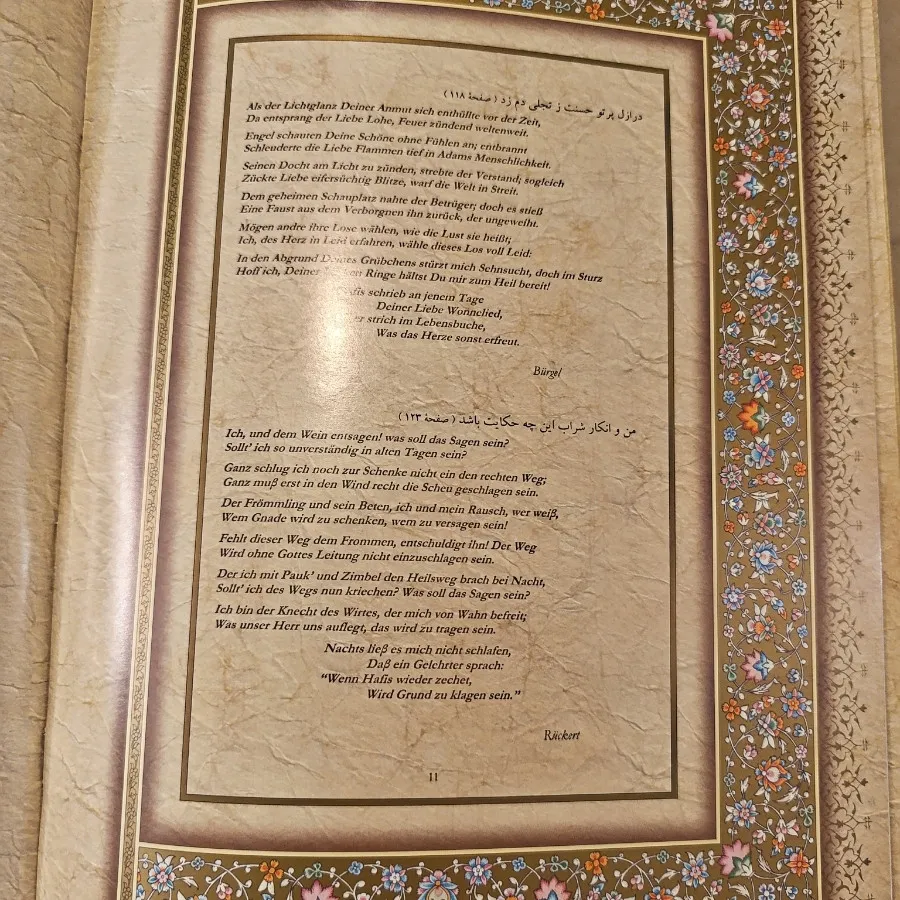 درازل پرتو حسنت ز تجلی دم زد ( صفحهٔ ۱۱۸ )
Als der Lichtglanz Deiner Anmut sich enthüllte vor der Zeit,
Da entsprang der Liebe Lohe, Feuer zündend weltenweit.
Engel schauten Deine Schöne ohne Fühlen an; entbrannt
Schleuderte die Liebe Flammen tief in Adams Menschlichkeit.
Seinen Docht am Licht zu zünden, strebte der Verstand; sogleich
Zückte Liebe eifersüchtig Blitze, warf die Welt in Streit.
Dem geheimen Schauplatz nahte der Betrüger; doch es stieß
Eine Faust aus dem Verborgnen ihn zurück, der ungeweiht.
Mögen andre ihre Lose wählen, wie die Lust sie heißt;
Ich, des Herz in Leid erfahren, wähle dieses Los voll Leid:
In den Abgrund Deines Grübchens stürzt mich Sehnsucht, doch im Sturz
Hoff' ich, Deiner Ringe hältst Du mir zum Heil bereit!
schrieb an jenem Tage
Deiner Liebe Wonnelied,
strich im Lebensbuche,
Was das Herze sonst erfreut.
Bürgel
من و انکار شراب این چه حکایت باشد ( صفحهٔ ۱۲۳ )
Ich, und dem Wein entsagen! was soll das Sagen sein?
Sollt' ich so unverständig in alten Tagen sein?
Ganz schlug ich noch zur Schenke nicht ein den rechten Weg;
Ganz muß erst in den Wind recht die Scheu geschlagen sein.
Der Frömmling und sein Beten, ich und mein Rausch, wer weiß,
Wem Gnade wird zu schenken, wem zu versagen sein!
Fehlt dieser Weg dem Frommen, entschuldigt ihn! Der Weg
Wird ohne Gottes Leitung nicht einzuschlagen sein.
Der ich mit Pauk' und Zimbel den Heilsweg brach bei Nacht,
Sollt' ich des Wegs nun kriechen? Was soll das Sagen sein?
Ich bin der Knecht des Wirtes, der mich von Wahn befreit;
Was unser Herr uns auflegt, das wird zu tragen sein.
Nachts ließ es mich nicht schlafen,
Daß ein Gelehrter sprach:
"Wenn Hafis wieder zechet,
Wird Grund zu klagen sein."
Rückert
11